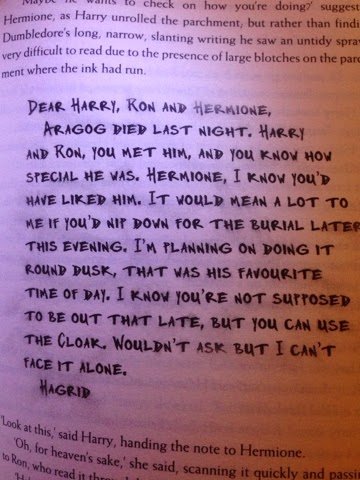 Maybe he wants to check on how you're doing?' suggest
Hermione, as Harry unrolled the parchment, but rather than findi
Dumbledore's long, narrow, slanting writing he saw an untidy spra
very difficult to read due to the presence of large blotches on the par
ment where the ink had run.
DEAR HARRY, RON AND HERMIONE,
ARAGOG DIED LAST NIGHT. HARRY
AND RON, YOU MET HIM, AND YOU KNOW HOW
SPECIAL HE WAS. HERMIONE, I KNOW YOU'D
HAVE LIKED HIM. IT WOULD MEAN A LOT TO
ME IF YOU'D NIP DOWN FOR THE BURIAL LATER
THIS EVENING. I'M PLANNING ON DOING IT
ROUND DUSK, THAT WAS HIS FAVOURITE
TIME OF DAY. I KNOW YOU'RE NOT SUPPOSED
TO BE OUT THAT LATE, BUT YOU CAN USE
THE CLOAK. WOULDN'T ASK BUT I CAN'T
FACE IT ALONE.
HAGRID
'Look at this,' said Harry, handing the note to Hermione.
'Oh, for heaven's sake,' she said, scanning it quickly and passin
to Ron, who read it